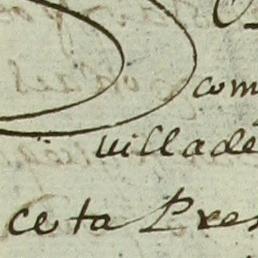 com
villade
ceta Pres